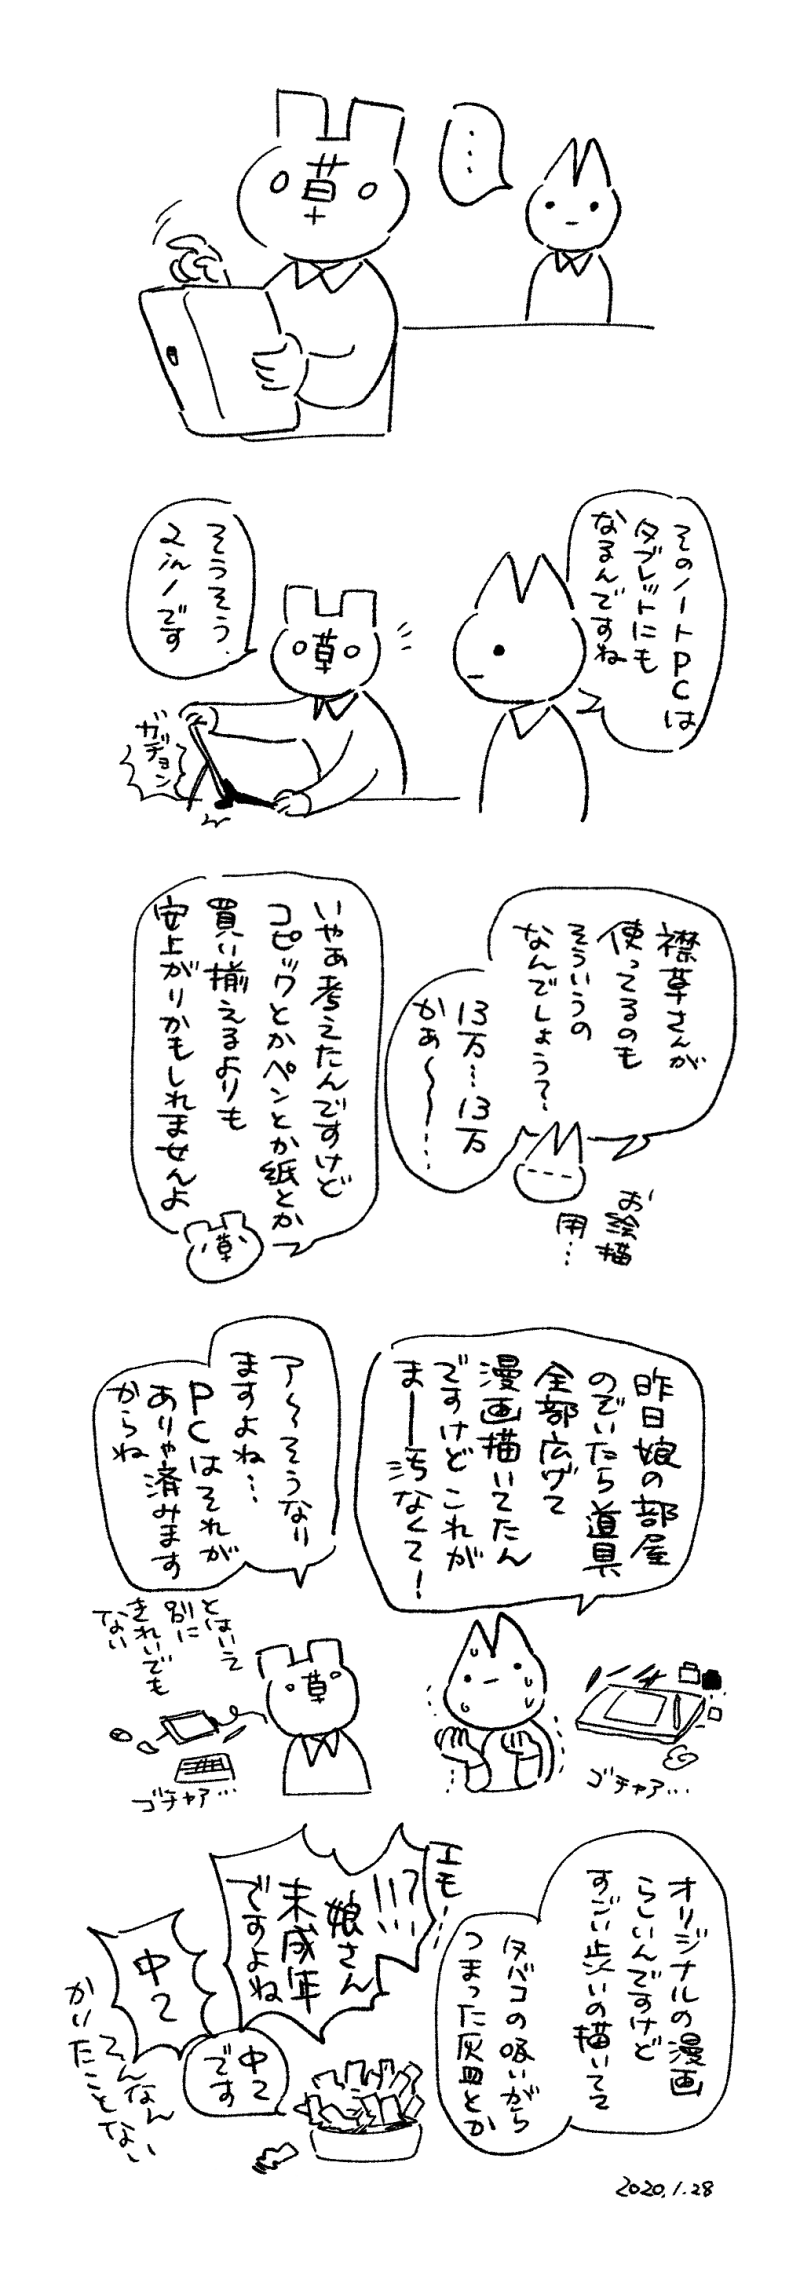 草
…
そのノートPCは
タブレットにも
なるんですね
そうそう
2in1です
草
ガヂョン
襟草さんが
使ってるのも
そういうの
なんでしょう?
13万…13万
かぁ〜〜…
お絵描
用…
いやぁ考えたんですけど
コピックとかペンとか紙とか
買い揃えるよりも
安上がりかもしれませんよ
草
昨日娘の部屋
のぞいたら道具
全部広げて
漫画描いてたん
ですけどこれが
まー汚なくて!
ア〜そうなり
ますよね…
PCはそれが
ありゃ済みます
からね
とはいえ
別に
きれいでも
ない
草
ゴチャア…
ゴチャア…
オリジナルの漫画
らしいんですけど
すごい渋いの描いてて
タバコの吸いがら
つまった灰皿とか
エモ…
!!?
娘さん
未成年
ですよね
中2
です
中2
そんなん
かいたことない
2020.1.28